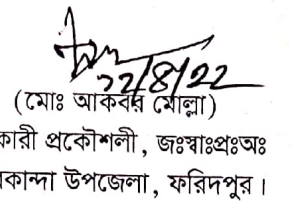 22/8/22
(মোঃ আকবর মোল্লা)
কারী প্রকৌশলী, জঃস্বাঃপ্রঃঅঃ
কান্দা উপজেলা, ফরিদপুর।